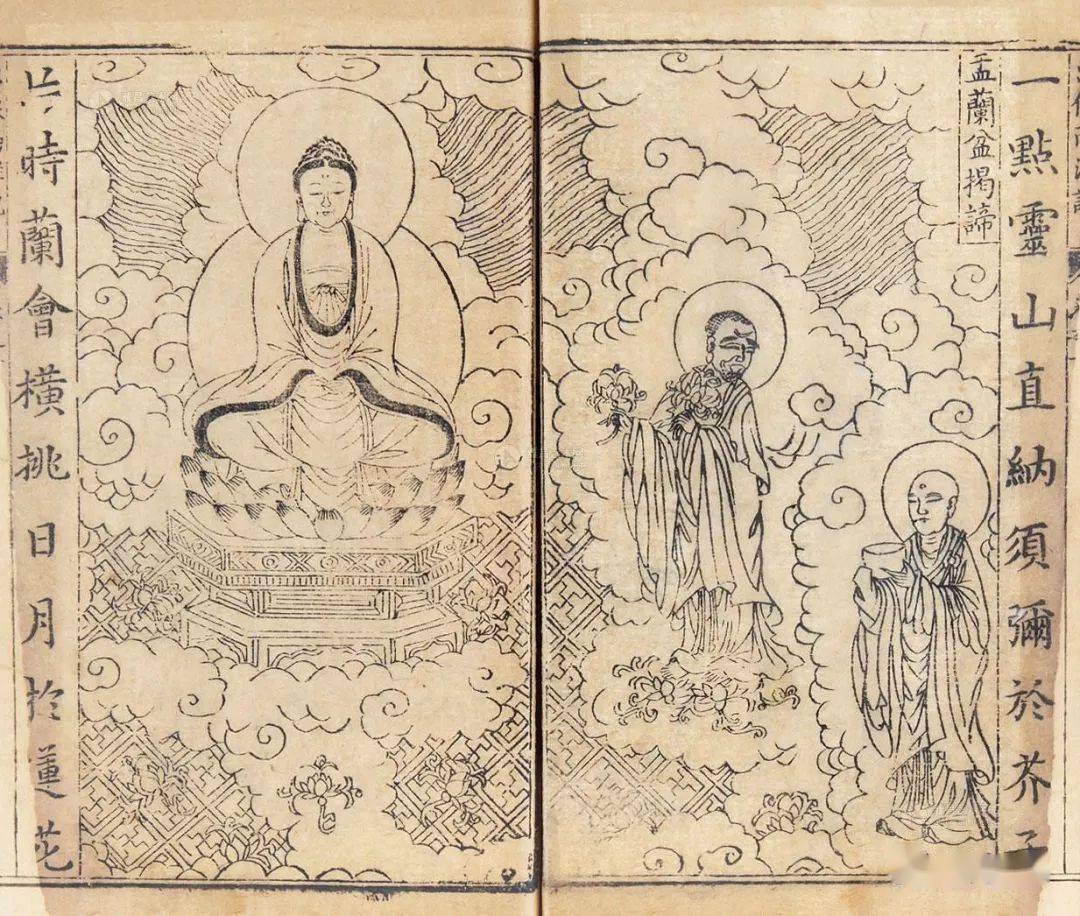 一點靈山直納須彌於芥子
盂蘭盆揭諦
片時蘭會橫挑日月於蓮花